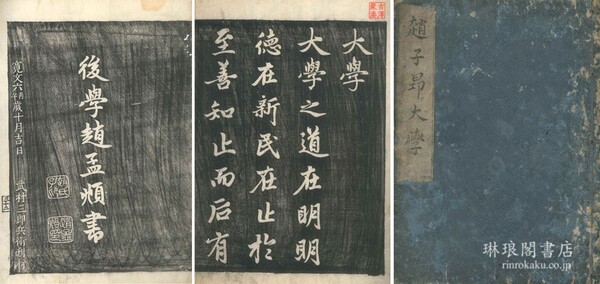 趙子昂大學
大學
大學之道在明明
德在新民在止於
至善知止而后有
後學趙孟頫書
寛文六丙午歳十月吉日 武村三郎兵衛刊行
琳琅閣書店
rinrokaku.co.jp